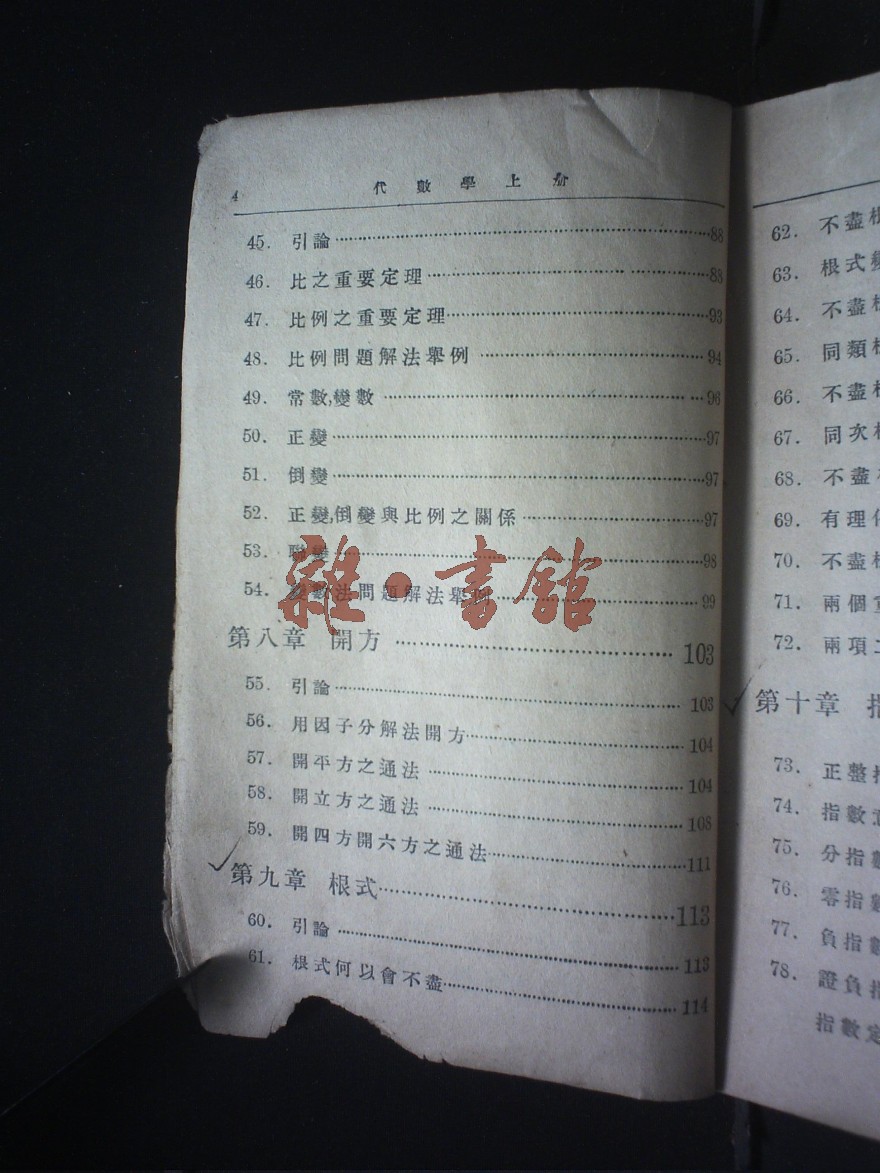 4 代數學上册
45. 引論 88
46. 比之重要定理 88
47. 比例之重要定理 93
48. 比例問題解法舉例 94
49. 常數,變數 96
50. 正變 97
51. 倒變 97
52. 正變,倒變與比例之關係 97
53. 聯變 98
54. 變數法問題解法舉例 99
雜·書館
第八章 開方 103
55. 引論 103
56. 用因子分解法開方 104
57. 開平方之通法 104
58. 開立方之通法 108
59. 開四方開六方之通法 111
第九章 根式 113
60. 引論 113
61. 根式何以會不盡 114
62. 不盡
63. 根式變
64. 不盡
65. 同類
66. 不盡
67. 同次
68. 不盡
69. 有理
70. 不盡
71. 兩個
72. 兩項
第十章 指
73. 正整
74. 指數
75. 分指數
76. 零指數
77. 負指數
78. 證負指
指數定